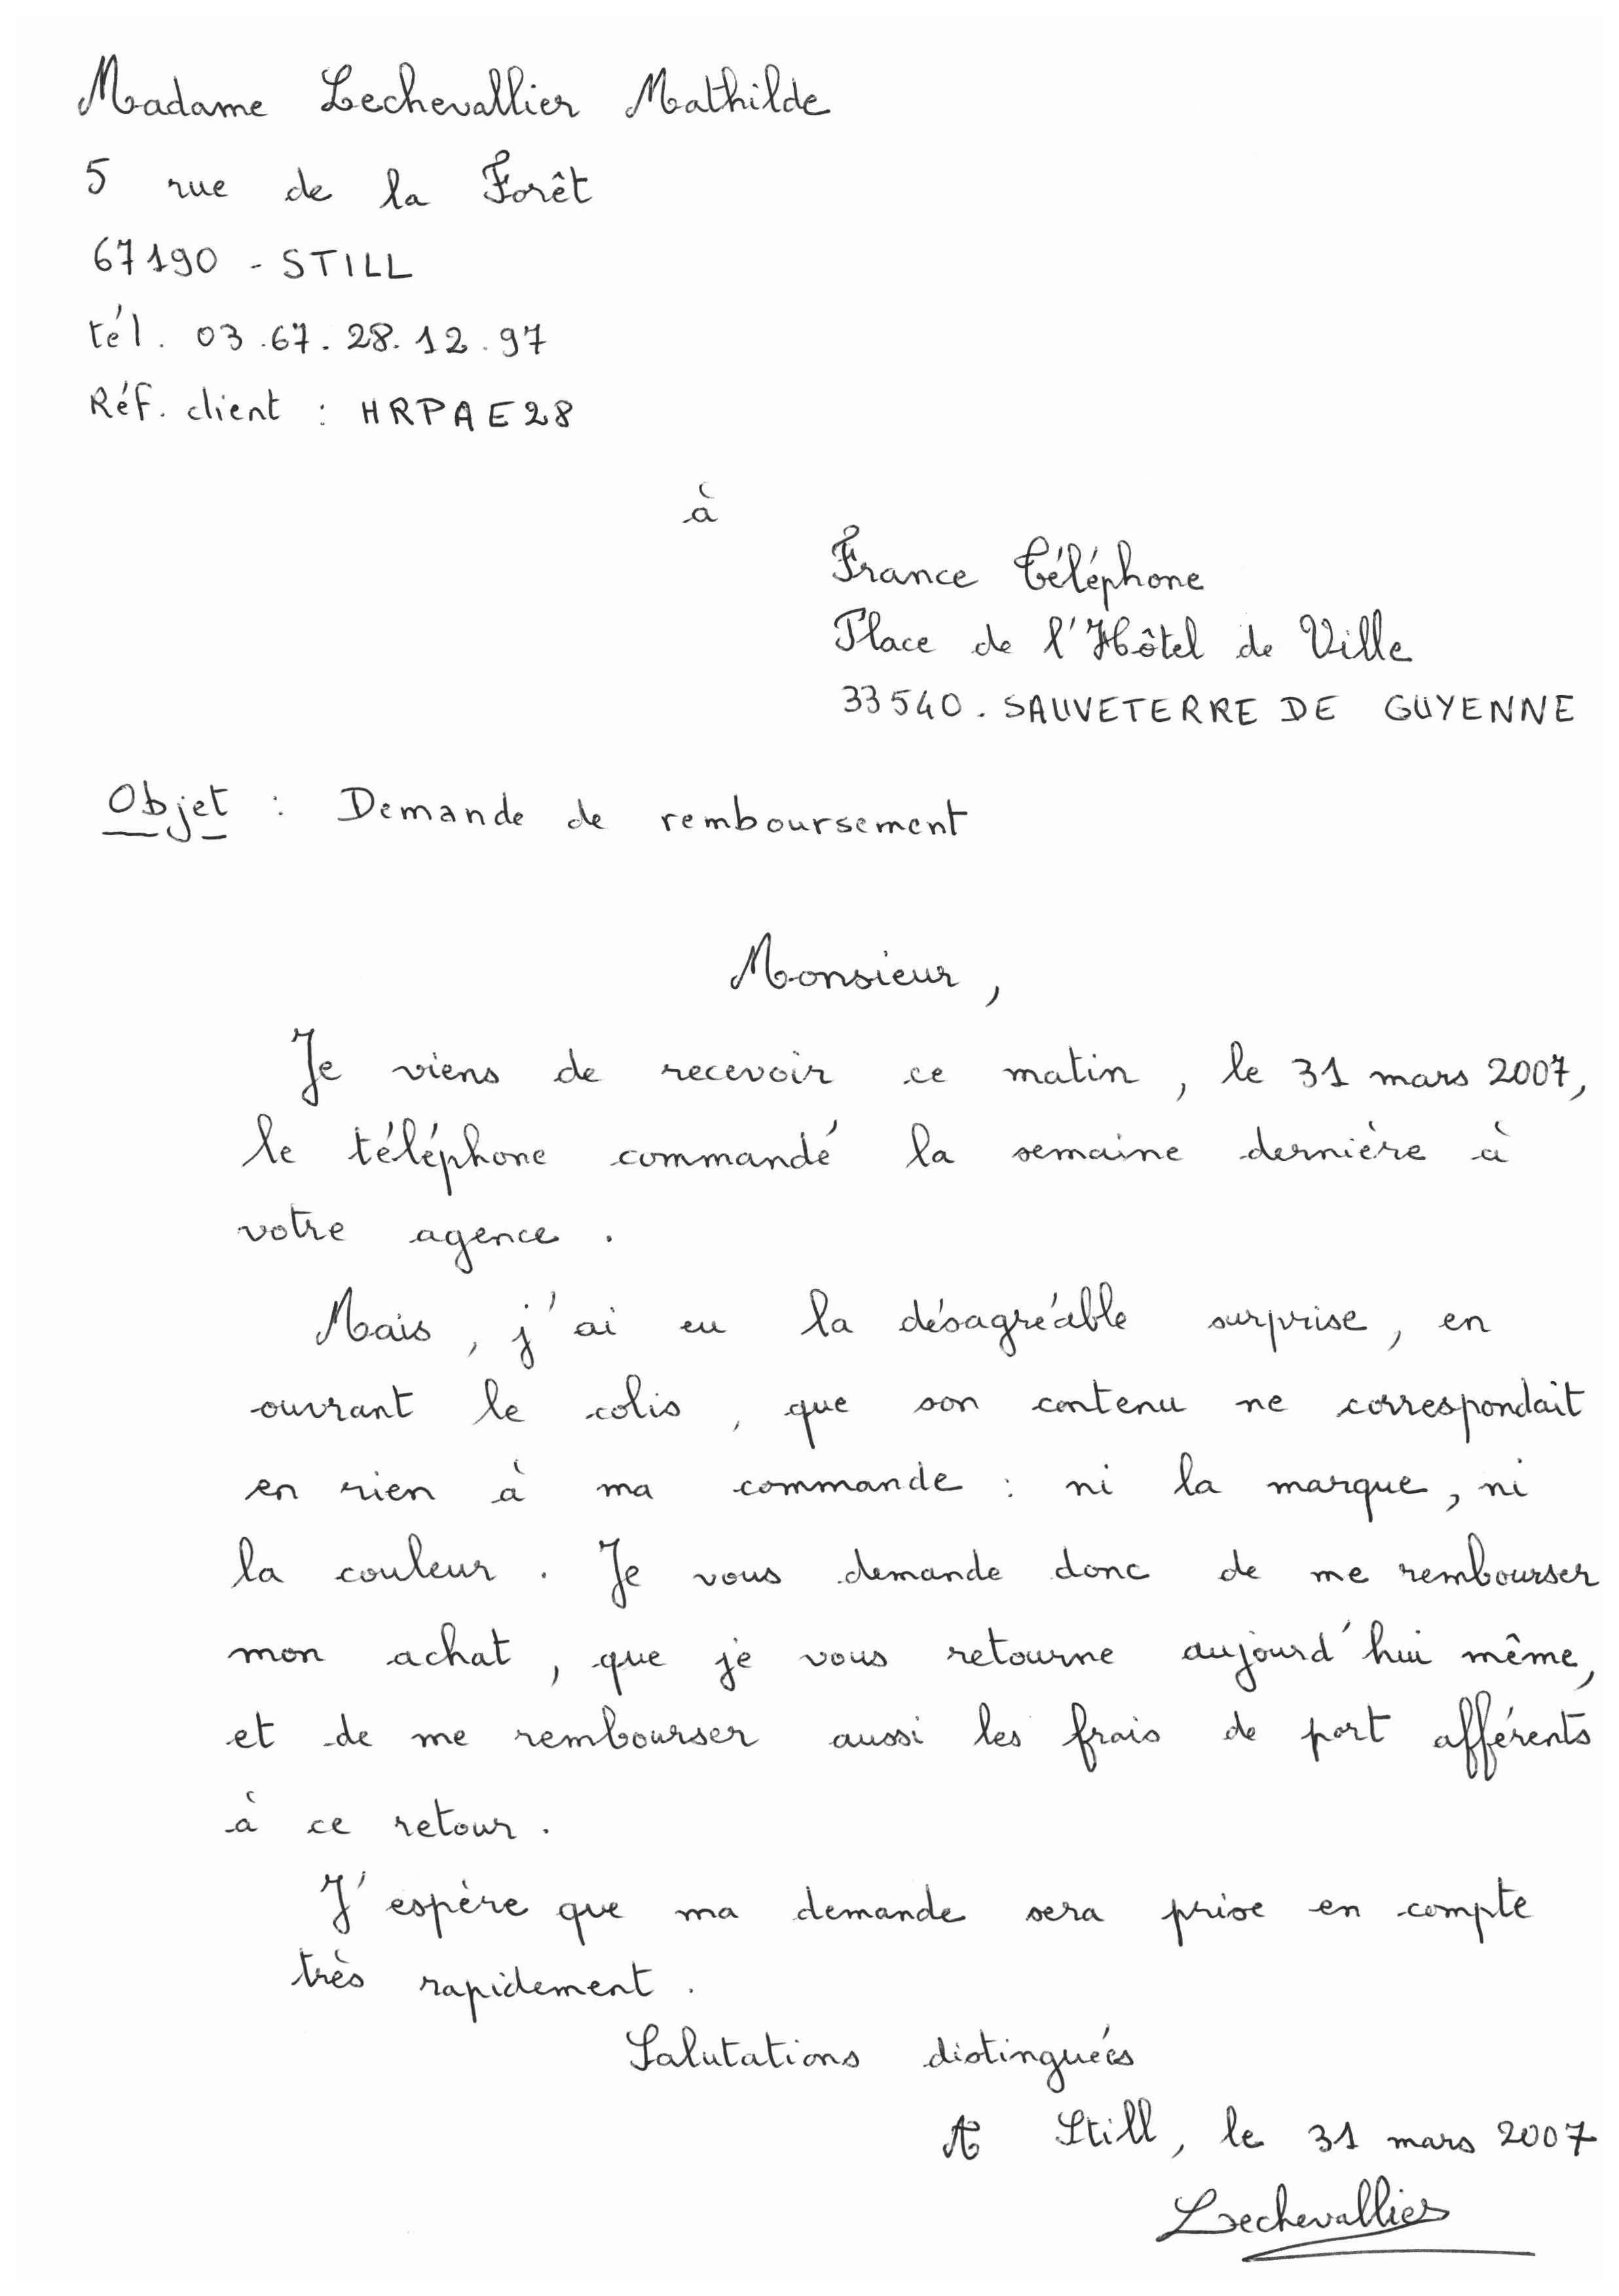 Madame Lechevallier Mathilde
5 rue de la Forêt
67190 - STILL
tél. 03.67.28.12.97
Réf. client : HRPAE28
à
France Téléphone
Place de l'Hôtel de Ville
33540. SAUVETERRE DE GUYENNE
Objet : Demande de remboursement
Monsieur,
Je viens de recevoir ce matin, le 31 mars 2007,
le téléphone commandé la semaine dernière à
votre agence.
Mais, j'ai eu la désagréable surprise, en
ouvrant le colis, que son contenu ne correspondait
en rien à ma commande : ni la marque, ni
la couleur. Je vous demande donc de me rembourser
mon achat, que je vous retourne aujourd'hui même,
et de me rembourser aussi les frais de port afférents
à ce retour.
J'espère que ma demande sera prise en compte
très rapidement.
Salutations distinguées
A Still, le 31 mars 2007
Lechevallier